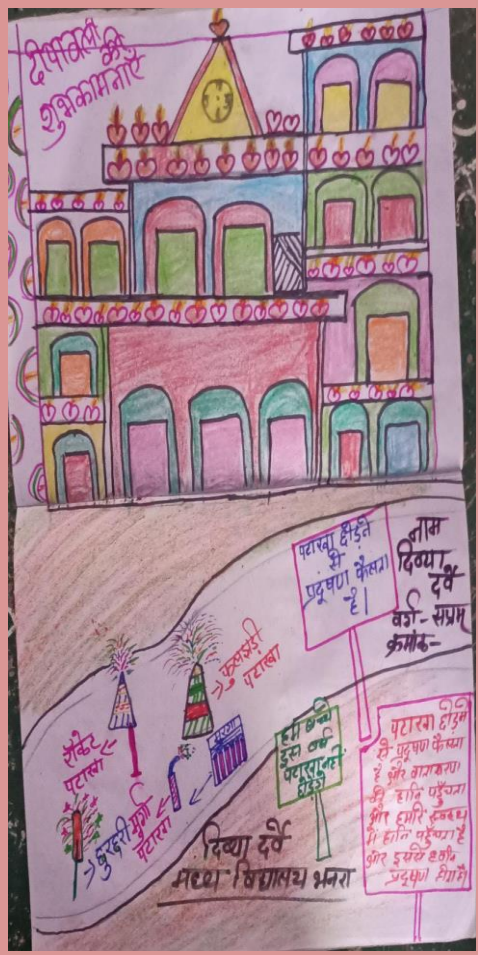 दीपावली की
शुभकामनाएँ
पटाखा छोड़ने
से
प्रदूषण फैलता
है।
नाम
दिव्या
दर्वे
वर्ग - सप्तम्
क्रमांक-
फुलझड़ी
पटाखा
रॉकेट
पटाखा
मुर्गा
पटाखा
मुर्गा
घुरहरी
हम बच्चे
इस वर्ष
पटाखा नहीं
छोड़ेंगे
पटाखा छोड़ने
से प्रदूषण फैलता
है और वातावरण
को हानि पहुँचता
और हमारे स्वास्थ्य
में हानि पहुँचता है
और इससे ध्वनि
प्रदूषण होता है।
दिव्या दर्वे
मध्य विद्यालय भनरा